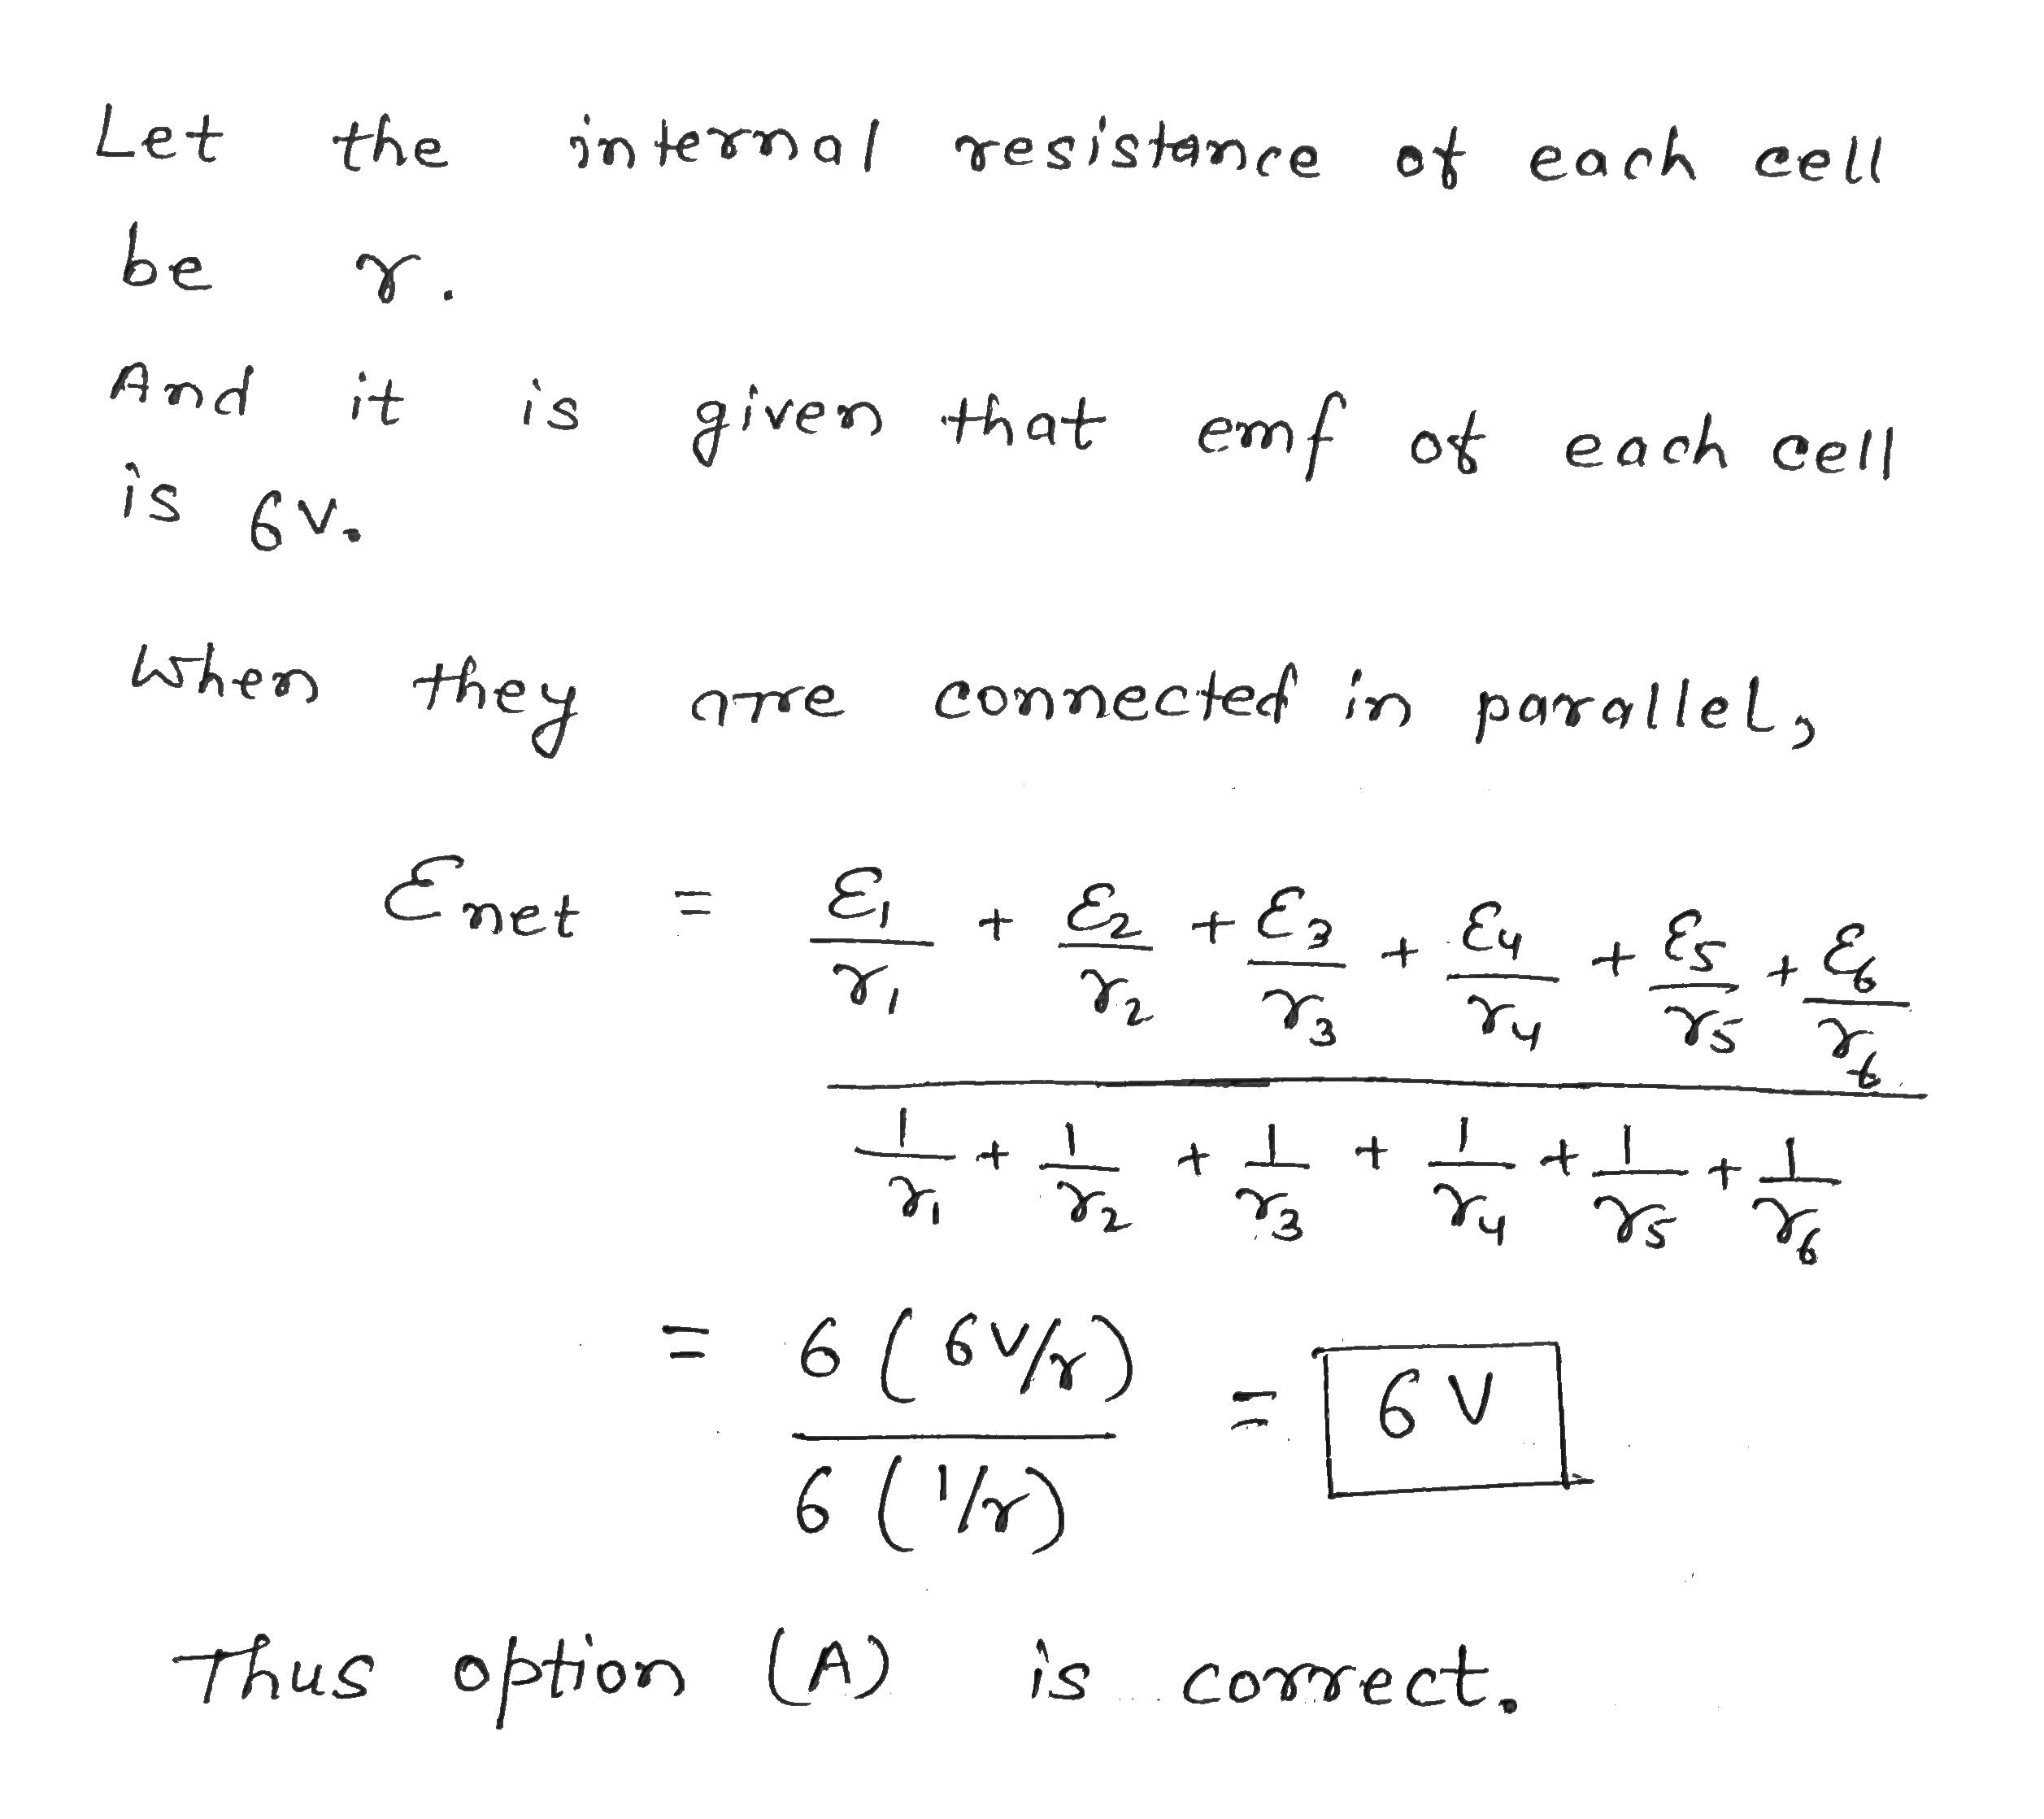 Let the internal resistance of each cell
be r.
And it is given that emf of each cell
is 6V.
When they are connected in parallel,
Enet = ε1/r1 + ε2/r2 + ε3/r3 + ε4/r4 + ε5/r5 + ε6/r6
1/r1 + 1/r2 + 1/r3 + 1/r4 + 1/r5 + 1/r6
= 6 (6V/r) = 6V
6 (1/r)
Thus option (A) is correct.